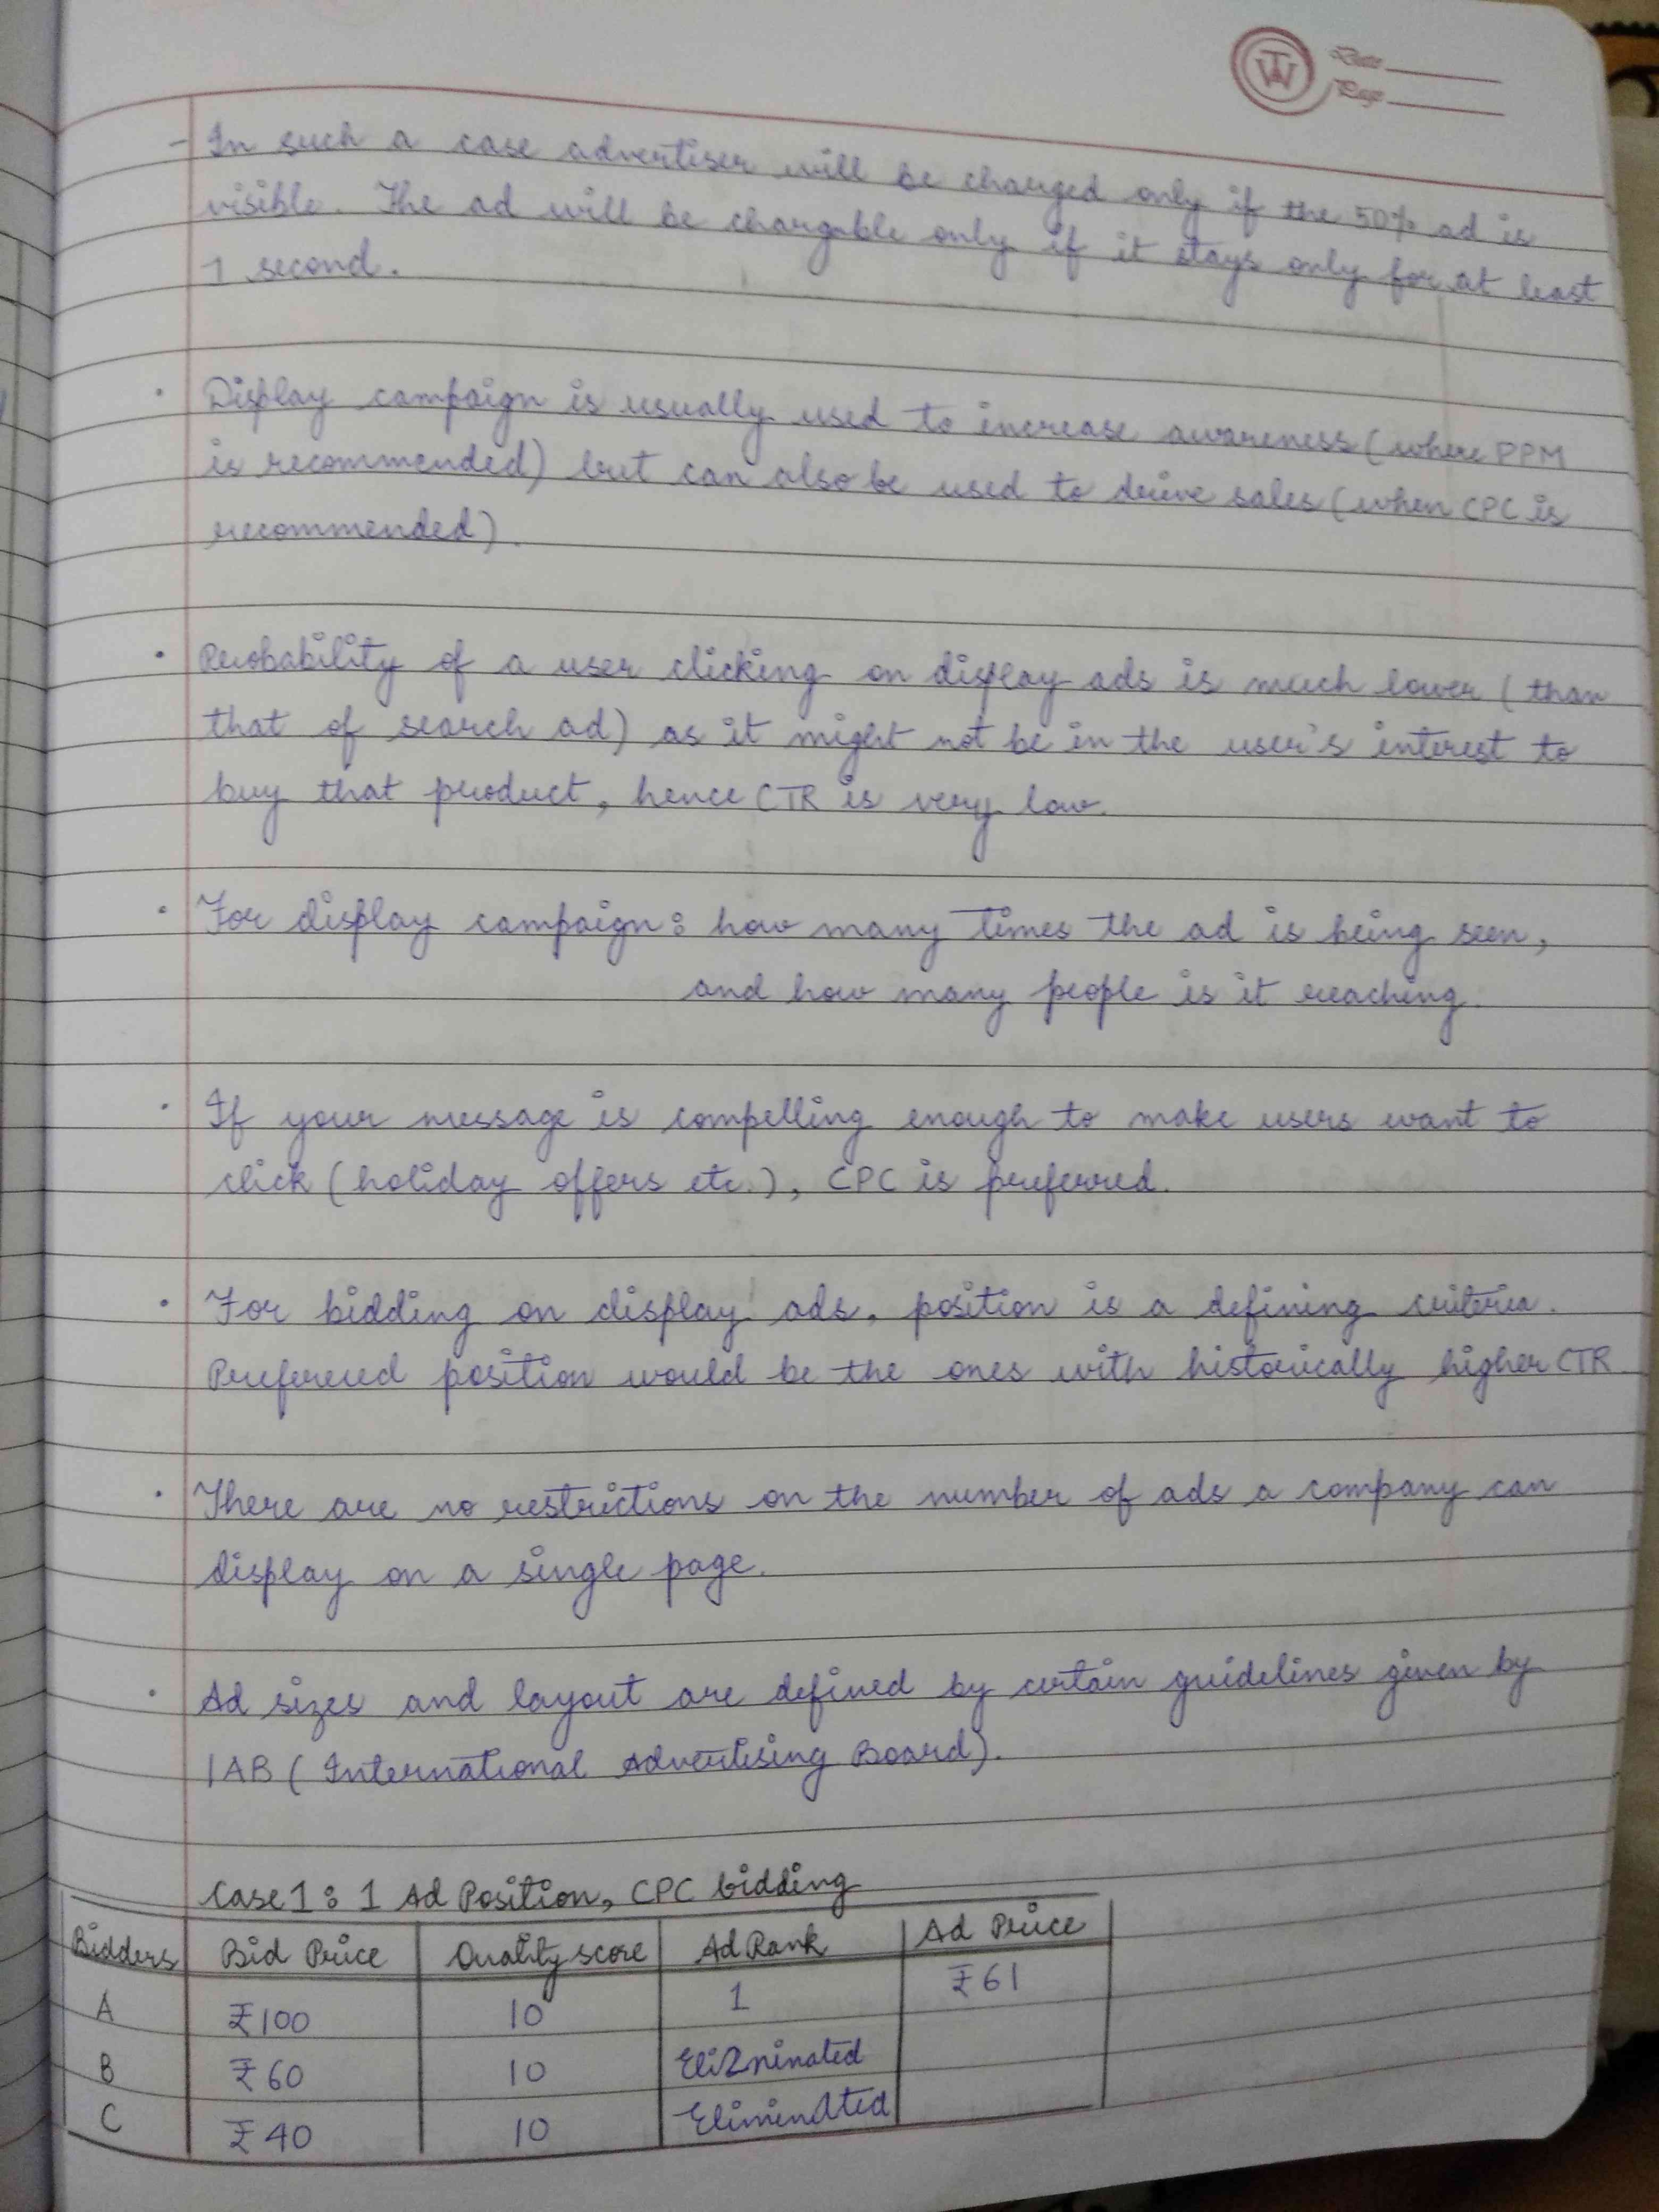 TW
Date
Page
- In such a case advertiser will be charged only if the 50% ad is
visible. The ad will be chargable only if it stays only for at least
1 second.
• Display campaign is usually used to increase awareness (where PPM
is recommended) but can also be used to drive sales (when CPC is
recommended).
• Probability of a user clicking on display ads is much lower (than
that of search ad) as it might not be in the user's interest to
buy that product, hence CTR is very low.
• For display campaign: how many times the ad is being seen,
and how many people is it reaching.
• If your message is compelling enough to make users want to
click (holiday offers etc.), CPC is preferred.
• For bidding on display ads, position is a defining criteria.
Preferred position would be the ones with historically higher CTR.
• There are no restrictions on the number of ads a company can
display on a single page.
• Ad sizes and layout are defined by certain guidelines given by
IAB (International Advertising Board).
Case 1: 1 Ad Position, CPC bidding
Bidders Bid Price Quality score Ad Rank Ad Price
A ₹100 10 1 ₹61
B ₹60 10 Eliminated
C ₹40 10 Eliminated